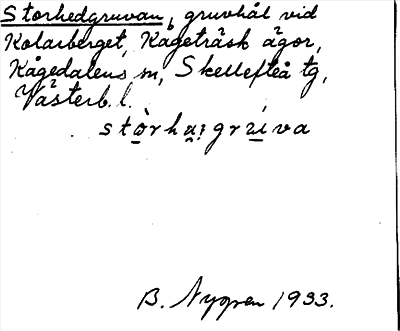 Storhedgruvan, gruvhål vid
Kolarberget, Kågeträsk ägor,
Kågedalens sn, Skellefteå tg,
Västerb. l.
B. Nygren 1933.